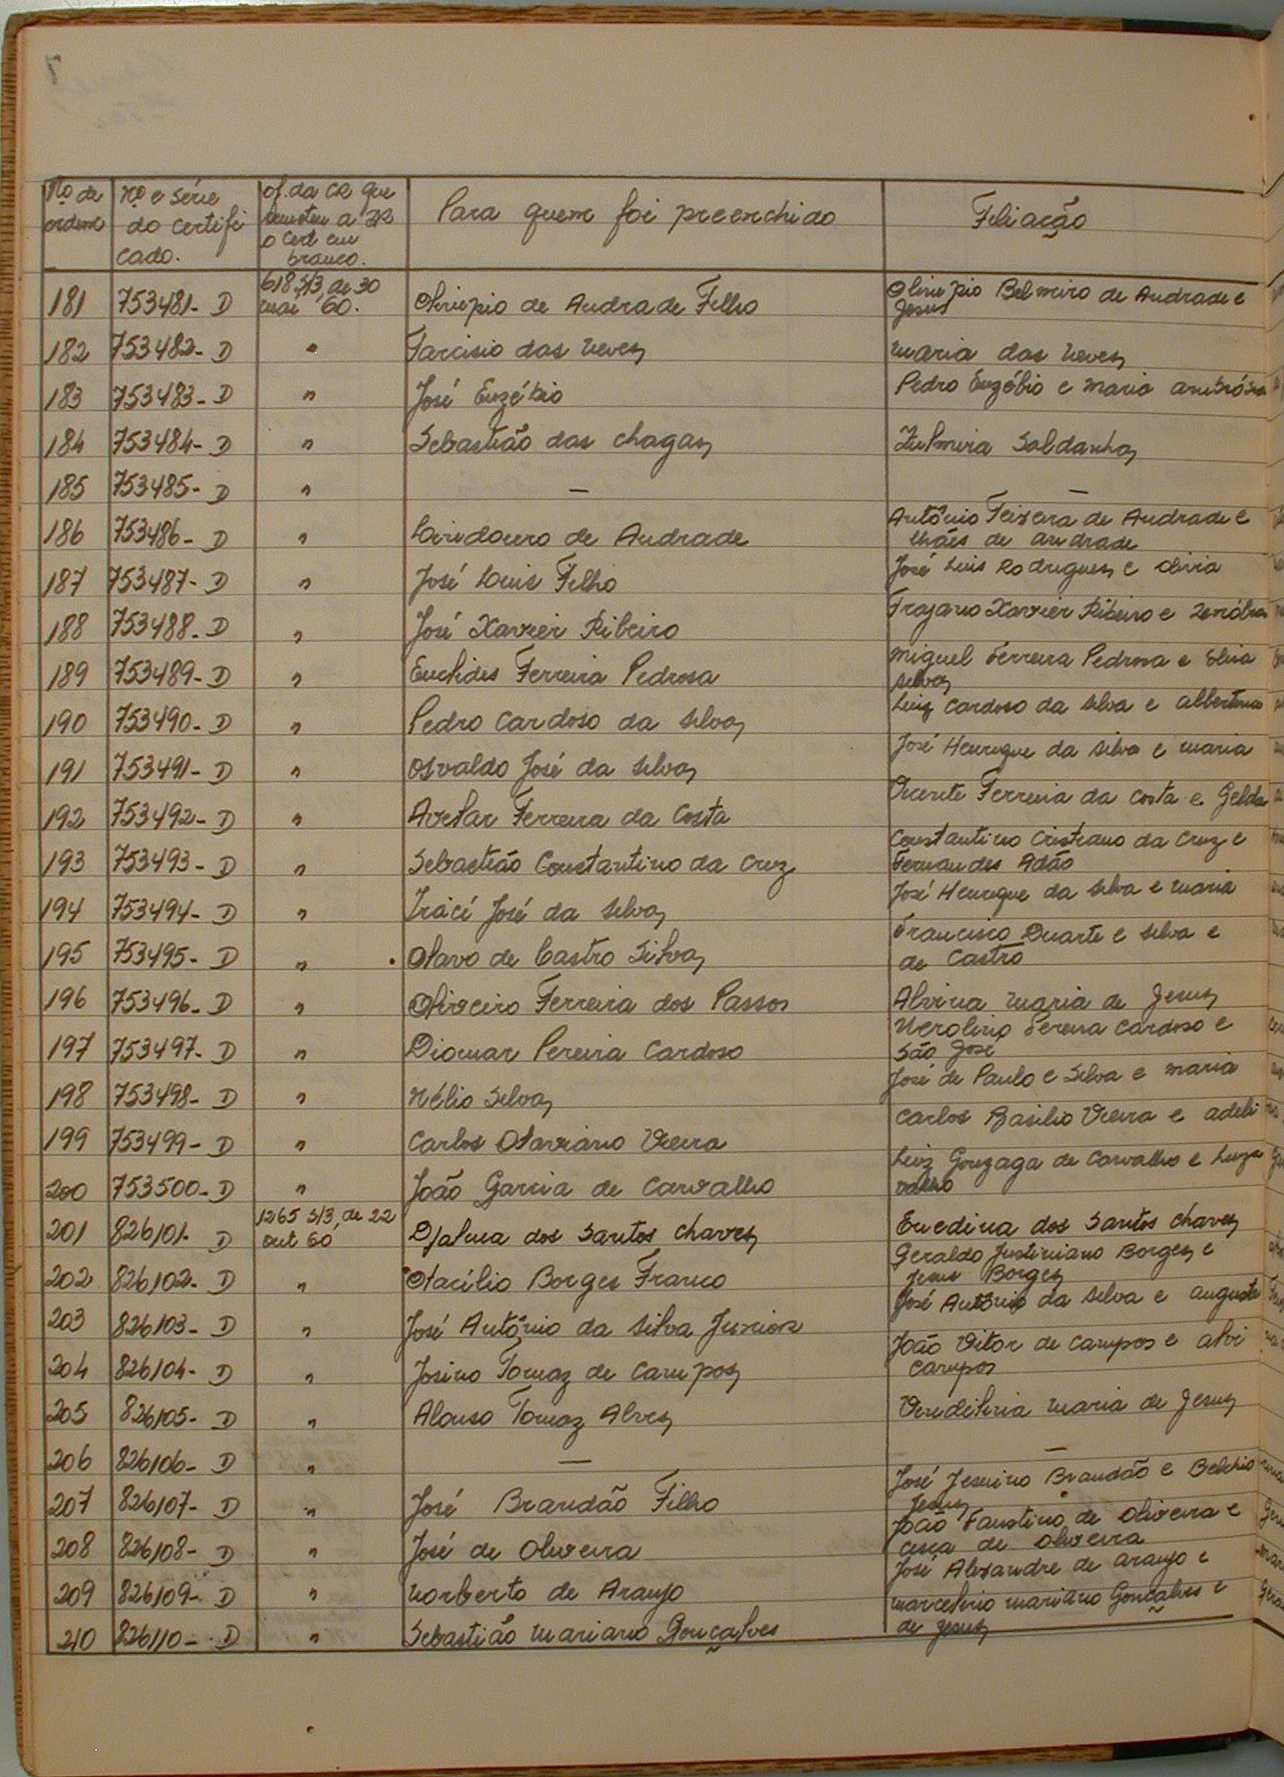 Nº de ordem | nº e série do certificado. | of. da CR que remeteu a o cert em branco. | Para quem foi preenchido | Filiação
181 | 753481- D | 618 S/3, de 30 mai 60. | Olimpio de Andrade Filho | Olimpio Belmiro de Andrade e Jesus
182 | 753482- D | " | Tarcisio das Neves | Maria das Neves
183 | 753483- D | " | José Euzébio | Pedro Euzébio e Maria
184 | 753484- D | " | Sebastião das Chagas | Zulmira Saldanha
185 | 753485- D | " | — | —
186 | 753486- D | " | Lindouro de Andrade | Antônio Teixeira de Andrade e lhães de Andrade
187 | 753487- D | " | José Luis Filho | José Luis Rodrigues e Olivia
188 | 753488- D | " | José Xavier Ribeiro | Trajano Xavier Ribeiro e Zenóbia
189 | 753489- D | " | Euclides Ferreira Pedrosa | Miguel Ferreira Pedrosa e Elisa Silva
190 | 753490- D | " | Pedro Cardoso da Silva | Luiz Cardoso da Silva e Albertina
191 | 753491- D | " | Osvaldo José da Silva | José Henrique da Silva e Maria
192 | 753492- D | " | Avelar Ferreira da Costa | Vicente Ferreira da Costa e Gelda
193 | 753493- D | " | Sebastião Constantino da Cruz | Constantino Cristiano da Cruz e Fernandes Adão
194 | 753494- D | " | Iraci José da Silva | José Henrique da Silva e Maria
195 | 753495- D | " | Olavo de Castro Silva | Francisco Duarte e Silva e de Castro
196 | 753496- D | " | Oliveiro Ferreira dos Passos | Alvina Maria de Jesus
197 | 753497- D | " | Diomar Pereira Cardoso | Nerolino Pereira Cardoso e São José
198 | 753498- D | " | Nélio Silva | José de Paulo e Silva e Maria
199 | 753499- D | " | Carlos Otaviano Vieira | Carlos Basilio Vieira e Adeli
200 | 753500- D | " | João Garcia de Carvalho | Luiz Gonzaga de Carvalho e Luza valho
201 | 826101- D | 1265 S/3, de 22 out 60 | Djalma dos Santos Chaves | Enedina dos Santos Chaves
202 | 826102- D | " | Otacílio Borges Franco | Geraldo Justiniano Borges e Jesus Borges
203 | 826103- D | " | José Antônio da Silva Junior | José Antônio da Silva e Augusta
204 | 826104- D | " | Josino Tomaz de Campos | João Vitor de Campos e Alvi Campos
205 | 826105- D | " | Alonso Tomaz Alves | Venditina Maria de Jesus
206 | 826106- D | " | — | —
207 | 826107- D | " | José Brandão Filho | José Jesuino Brandão e Belchio Jesus
208 | 826108- D | " | José de Oliveira | João Faustino de Oliveira e cisca de Oliveira
209 | 826109- D | " | Norberto de Araujo | José Alexandre de Araujo e
210 | 826110- D | " | Sebastião Mariano Gonçalves | Marcelino Mariano Gonçalves e de Jesus